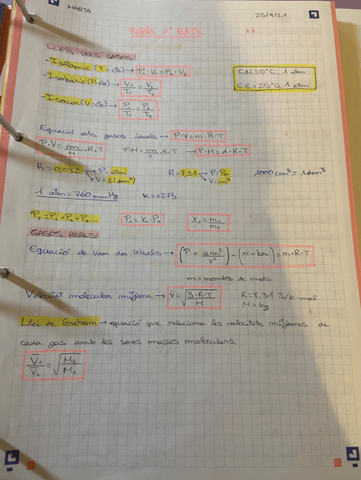 MARTA
25/9/21
REPÀS 1r BATX
LLEIS DELS GASOS
- Isotèrmic (T = cte) → P₁ · V₁ = P₂ · V₂
C.N = 0°C, 1 atm
- Isobàric (P cte) → V₁/T₁ = V₂/T₂
C.E = 25°C, 1 atm
- Isocor (V = cte) → P₁/T₁ = P₂/T₂
Equació dels gasos ideals → P·V = n·R·T
P·V = m/M · R·T
P·M = m/V · R·T → P·M = d·R·T
R = 0,082 → P = atm
V = L (dm³)
R = 8,31 → P = Pa
V = m³
1000 cm³ = 1 dm³
1 atm = 760 mmHg
K = +273
P_T = P₁ + P₂ + P₃...
GASOS REALS
Equació de Van der Waals → (P + a·n²/V²) · (V - bn) = n·R·T
n = nombre de mols
Velocitat molecular mitjana → V̄ = √(3·R·T/M)
R = 8,31 J/K·mol
M = Kg
Llei de Graham → equació que relaciona les velocitats mitjanes de
cada gas amb les seves masses moleculars.
V̄₁/V̄₂ = √(M₂/M₁)